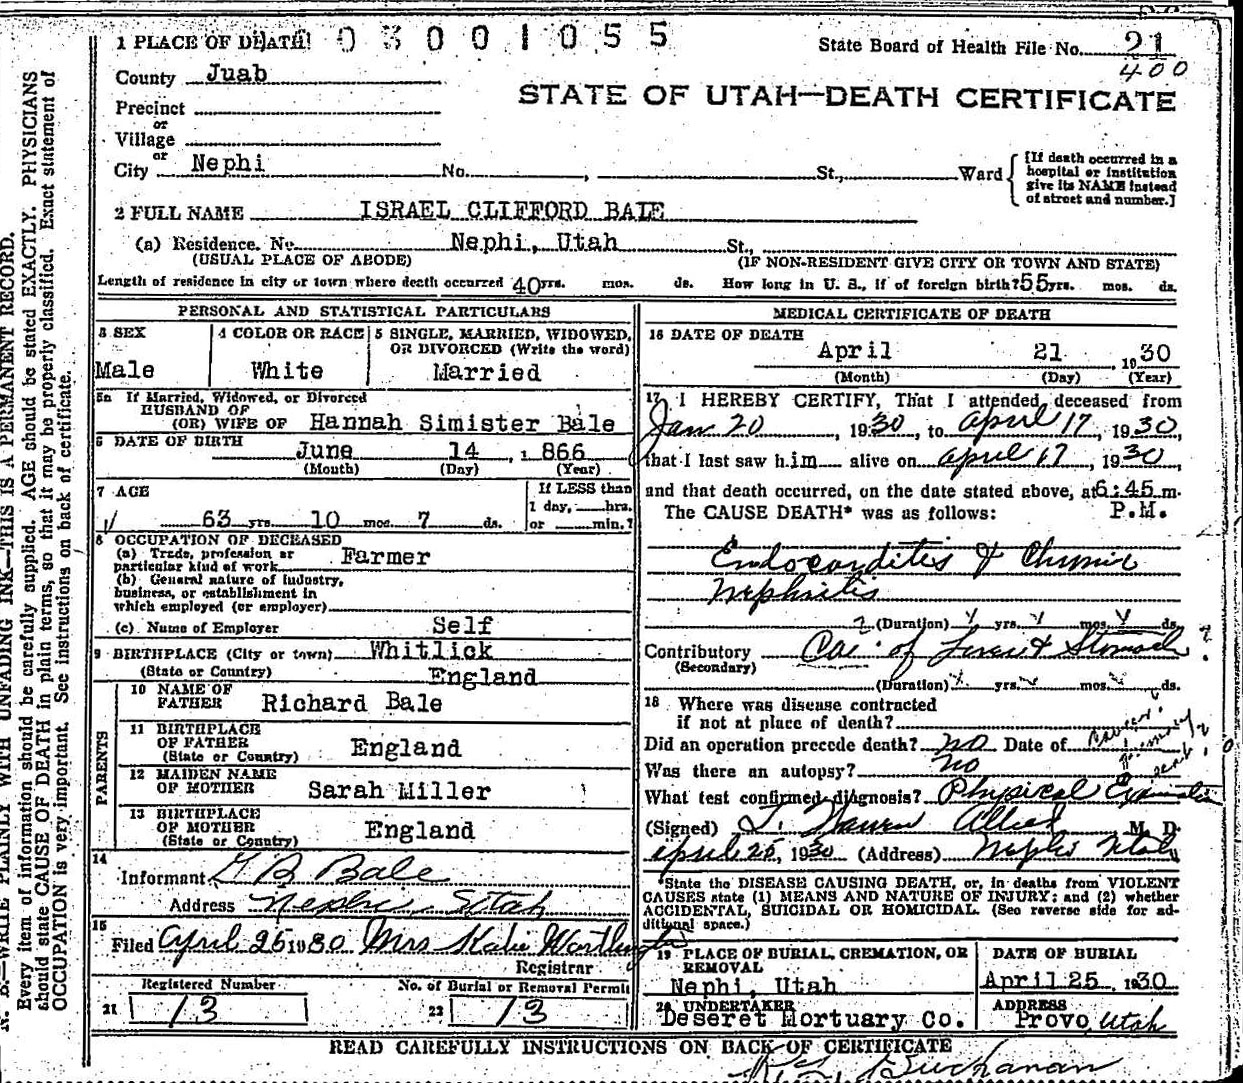 1 PLACE OF DEATH! 0 3 0 0 1 0 5 5
State Board of Health File No. 21
400
County Juab
STATE OF UTAH—DEATH CERTIFICATE
Precinct
or
Village
or
City Nephi No. , St., Ward
[If death occurred in a
hospital or institution
give its NAME instead
of street and number.]
2 FULL NAME ISRAEL CLIFFORD BALE
(a) Residence. No. Nephi, Utah St.,
(USUAL PLACE OF ABODE) (IF NON-RESIDENT GIVE CITY OR TOWN AND STATE)
Length of residence in city or town where death occurred 40 yrs. mos. ds. How long in U. S., if of foreign birth? 55 yrs. mos. ds.
PERSONAL AND STATISTICAL PARTICULARS
3 SEX
Male
4 COLOR OR RACE
White
5 SINGLE, MARRIED, WIDOWED,
OR DIVORCED (Write the word)
Married
5a If Married, Widowed, or Divorced
HUSBAND OF
(OR) WIFE OF Hannah Simister Bale
6 DATE OF BIRTH
June 14 , 1 866
(Month) (Day) (Year)
7 AGE
63 yrs. 10 mos. 7 ds.
If LESS than
1 day, hrs.
or min.?
8 OCCUPATION OF DECEASED
(a) Trade, profession or
particular kind of work Farmer
(b) General nature of industry,
business, or establishment in
which employed (or employer)
(c) Name of Employer Self
9 BIRTHPLACE (City or town) Whitlick
(State or Country) England
PARENTS
10 NAME OF
FATHER Richard Bale
11 BIRTHPLACE
OF FATHER England
(State or Country)
12 MAIDEN NAME
OF MOTHER Sarah Miller
13 BIRTHPLACE
OF MOTHER England
(State or Country)
14
Informant G B Bale
Address Nephi Utah
15
Filed April 25 1930 Mrs Katie Worthington
Registrar
Registered Number
21 13
No. of Burial or Removal Permit
22 13
MEDICAL CERTIFICATE OF DEATH
16 DATE OF DEATH
April 21 , 1930
(Month) (Day) (Year)
17 I HEREBY CERTIFY, That I attended deceased from
Jan 20, 1930, to April 17, 1930,
that I last saw him alive on April 17, 1930,
and that death occurred, on the date stated above, at 6:45 m.
The CAUSE DEATH* was as follows: P.M.
Endocarditis & Chronic
Nephritis
(Duration) yrs. mos. ds.
Contributory Ca. of Liver & Stomach ?
(Secondary)
(Duration) yrs. mos. ds.
18 Where was disease contracted
if not at place of death?
Did an operation precede death? no Date of
Was there an autopsy? no
What test confirmed diagnosis? Physical
(Signed) M. D.
April 25, 1930 (Address) Nephi Utah
*State the DISEASE CAUSING DEATH, or, in deaths from VIOLENT
CAUSES state (1) MEANS AND NATURE OF INJURY; and (2) whether
ACCIDENTAL, SUICIDAL OR HOMICIDAL. (See reverse side for ad-
ditional space.)
19 PLACE OF BURIAL, CREMATION, OR
REMOVAL
Nephi, Utah
DATE OF BURIAL
April 25, 1930
20 UNDERTAKER
Deseret Mortuary Co.
ADDRESS
Provo, Utah
READ CAREFULLY INSTRUCTIONS ON BACK OF CERTIFICATE
Buchanan
N. B.—WRITE PLAINLY WITH UNFADING INK—THIS IS A PERMANENT RECORD.
Every item of information should be carefully supplied. AGE should be stated EXACTLY. PHYSICIANS
should state CAUSE OF DEATH in plain terms, so that it may be properly classified. Exact statement of
OCCUPATION is very important. See instructions on back of certificate.